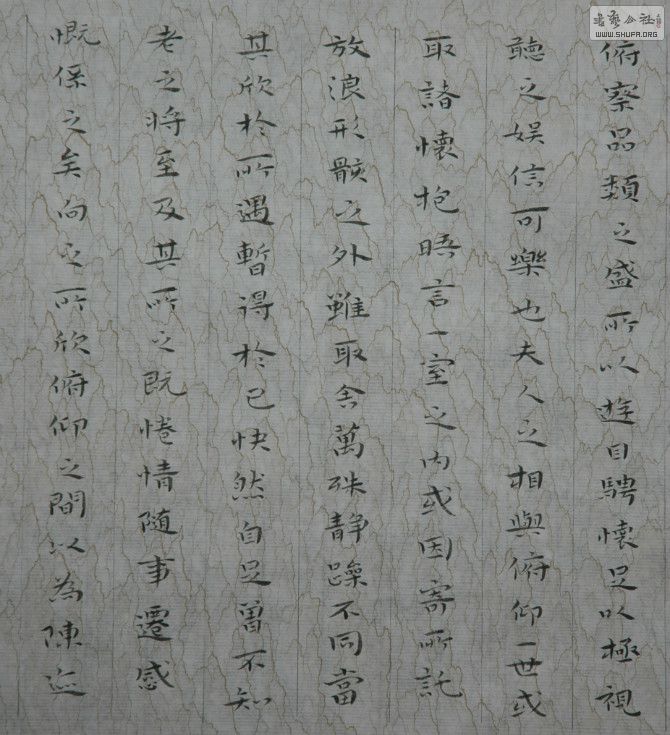 俯察品類之盛所以遊目騁懷足以極視
聽之娱信可樂也夫人之相與俯仰一世或
取諸懷抱晤言一室之内或因寄所託
放浪形骸之外雖取舍萬殊静躁不同當
其欣於所遇暫得於己快然自足曾不知
老之将至及其所之既惓情随事遷感
慨係之矣向之所欣俯仰之間以為陳迹
書藝公社
WWW.SHUFA.ORG